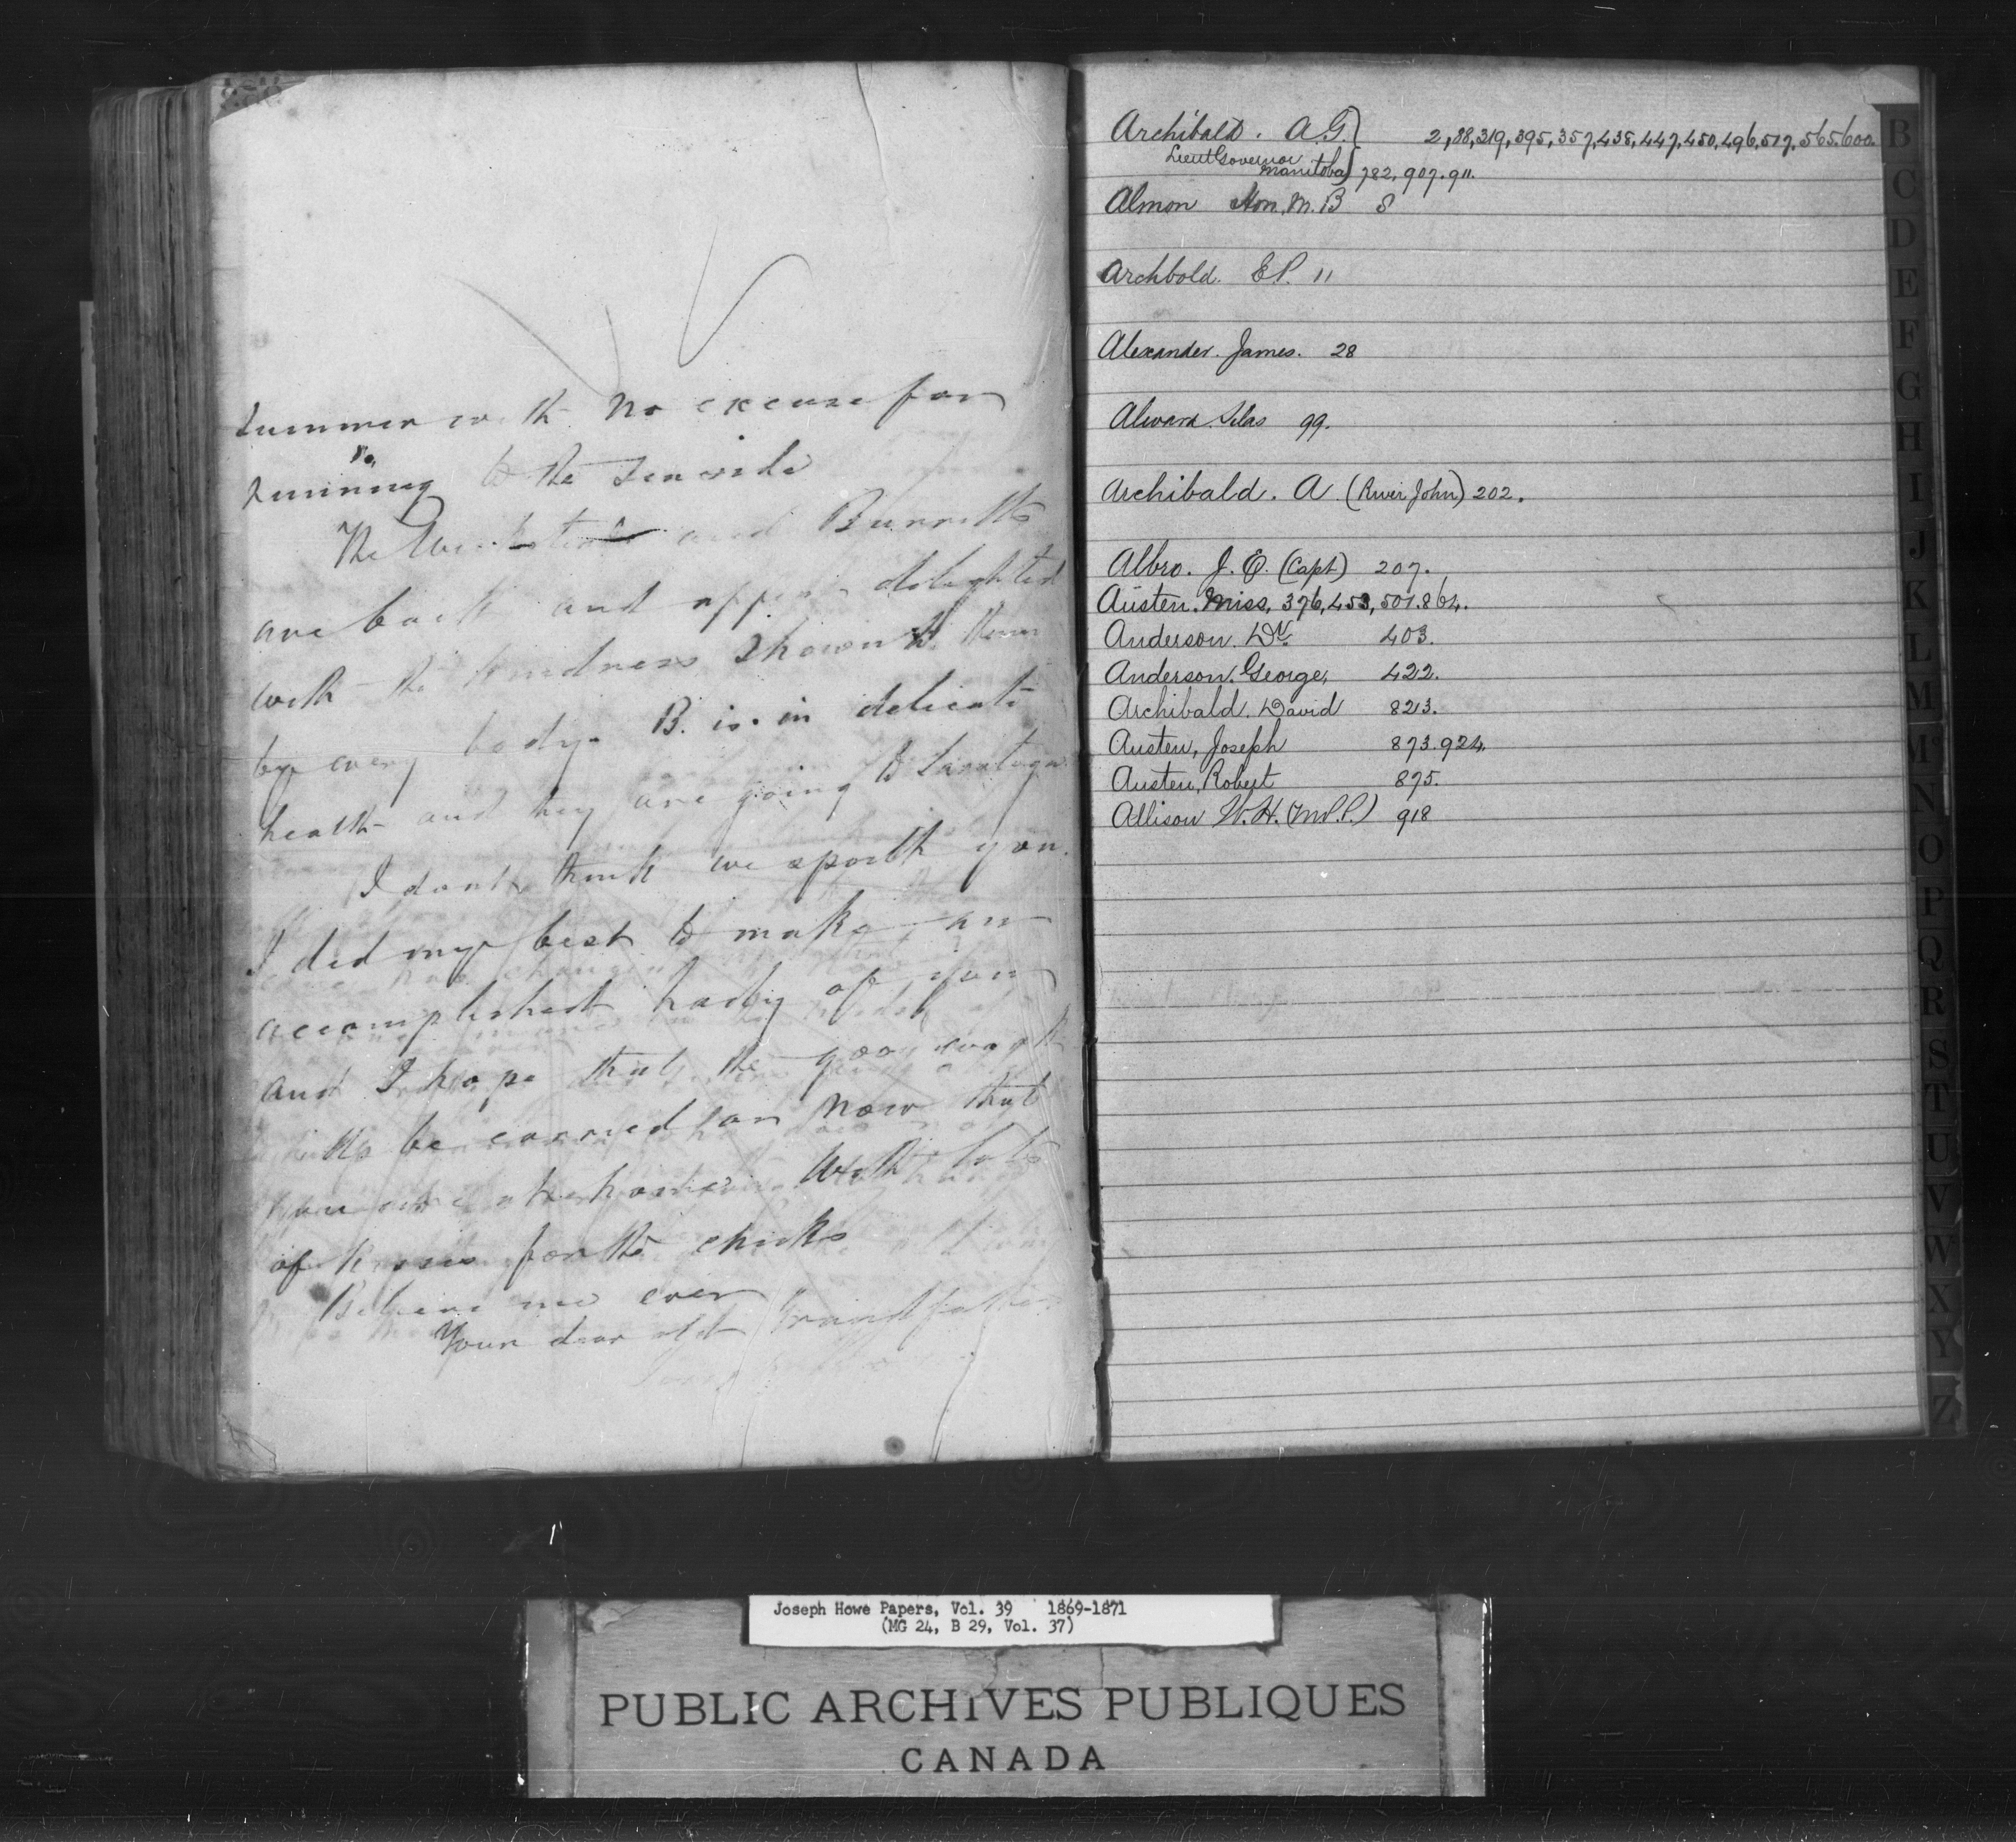 summer with no excuse for
running to the sea side
The and Burritts
are back and appear delighted
with the kindness shown to them
by every body. B. is in delicate
health and they are going to Saratoga
I dont think we spoilt you.
I did my best to make an
accomplished lady of you
and I hope that the good work
will be carried on now that
you are at home. With lots
of kisses for the chicks
Believe me ever
Your dear old Grandfather
Archibald. A.G.} 2,88,319,395,357,438,447,450,496,517,565.600.
Lieut Governor
Manitoba} 782, 907.911.
Almon Hon. M. B 8
Archbold. E.P. 11
Alexander. James. 28
Alward. Silas 99.
Archibald. A. (River John) 202.
Albro. J. E. (Capt) 207.
Austen. Miss, 376,453,501.864.
Anderson. Dr. 403.
Anderson. George, 422.
Archibald. David 823.
Austen, Joseph 873.924.
Austen, Robert 875.
Allison W. H. (M.P.) 918
B
C
D
E
F
G
H
I
J
K
L
M
Mc
N
O
P
Q
R
S
T
U
V
W
X
Y
Z
Joseph Howe Papers, Vol. 39 1869-1871
(MG 24, B 29, Vol. 37)
PUBLIC ARCHIVES PUBLIQUES
CANADA